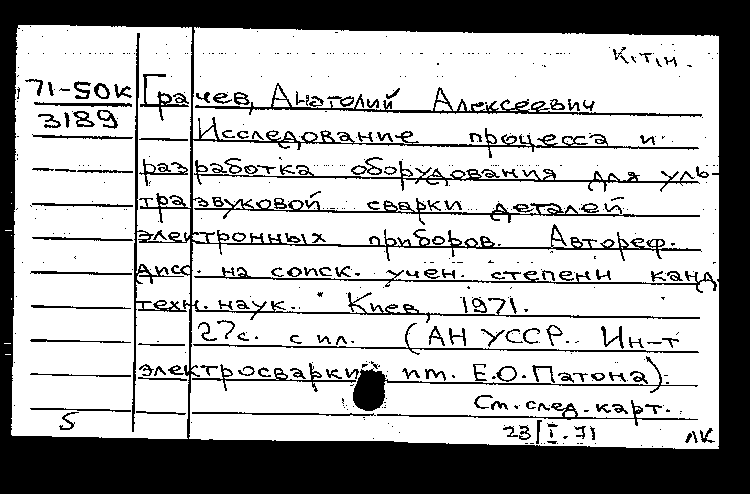 К.т.н.
71-50к Грачев, Анатолий Алексеевич
3189 Исследование процесса и
разработка оборудования для уль-
тразвуковой сварки деталей
электронных приборов. Автореф.
дисс. на соиск. учен. степени канд.
техн. наук. Киев, 1971.
27с. с ил. (АН УССР. Ин-т
электросварки им. Е.О. Патона).
См. след. карт.
5 23/I.71 ЛК